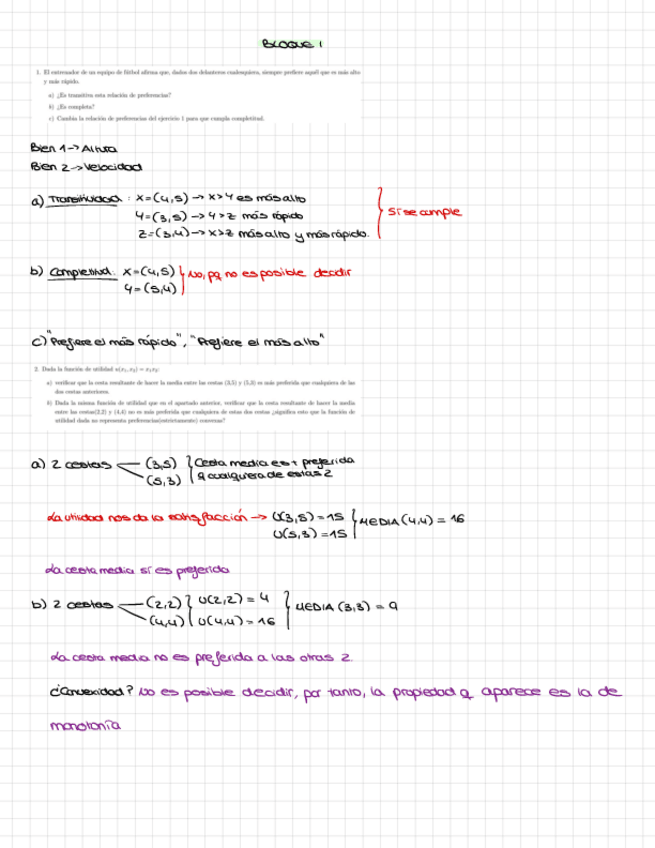 Bloque 1
1. El entrenador de un equipo de fútbol afirma que, dados dos delanteros cualesquiera, siempre prefiere aquél que es más alto
y más rápido.
a) ¿Es transitiva esta relación de preferencias?
b) ¿Es completa?
c) Cambia la relación de preferencias del ejercicio 1 para que cumpla completitud.
Bien 1 -> Altura
Bien 2 -> Velocidad
a) Transitividad : x=(4,5) -> x>y es más alto
y=(3,5) -> y>z más rápido
z=(3,4) -> x>z más alto y más rápido.
Sí se cumple
b) Completitud: x=(4,5)
y=(5,4)
No, pq no es posible decidir
c) "Prefiere el más rápido", "Prefiere el más alto"
2. Dada la función de utilidad u(x₁,x₂) = x₁x₂:
a) verificar que la cesta resultante de hacer la media entre las cestas (3,5) y (5,3) es más preferida que cualquiera de las
dos cestas anteriores.
b) Dada la misma función de utilidad que en el apartado anterior, verificar que la cesta resultante de hacer la media
entre las cestas(2,2) y (4,4) no es más preferida que cualquiera de estas dos cestas ¿significa esto que la función de
utilidad dada no representa preferencias(estrictamente) convexas?
a) 2 cestas (3,5) Cesta media es + preferida
(5,3) q cualquiera de estas 2
La utilidad nos da la satisfacción -> U(3,5) = 15 MEDIA (4,4) = 16
U(5,3) = 15
La cesta media sí es preferida
b) 2 cestas (2,2) U(2,2) = 4 MEDIA (3,3) = 9
(4,4) U(4,4) = 16
La cesta media no es preferida a las otras 2.
¿Convexidad? No es posible decidir, por tanto, la propiedad q aparece es la de
monotonía